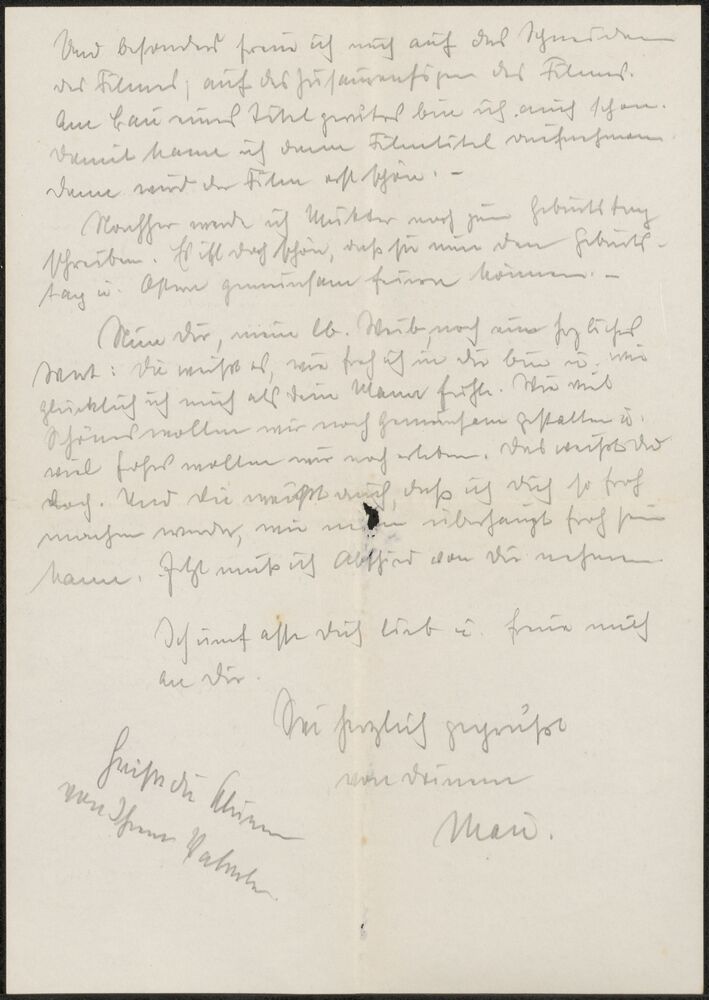 Und besonders freue ich mich auf das Schneiden
des Filmes, auf das Zusammenfügen des Filmes.
Am Bau eines Titelgerätes bin ich auch schon.
Damit kann ich dann Filmtitel aufnehmen
dann wird der Film erst schön. –
Nachher werde ich Mutter noch zum Geburtstag
schreiben. Es ist doch schön, daß sie nun den Geburts-
tag u. Ostern gemeinsam feiern können. –
Nun Dir, mein lb. Weib, noch ein herzliches
Wort: Du weißt es, wie froh ich in Dir bin u. wie
glücklich ich mich als Dein Mann fühle. Wie viel
Schönes wollen wir noch gemeinsam gestalten u.
viel frohes wollen wir noch erleben. Das weißt Du
doch. Und Du weißt auch, daß ich Dich so froh
machen werde, wie man überhaupt froh sein
kann. Jetzt muß ich Abschied von Dir nehmen
Ich umfasse Dich lieb u. freue mich
an Dir.
Sei herzlich gegrüßt
von Deinem
Mann.
Grüße die Kleinen
von Ihrem